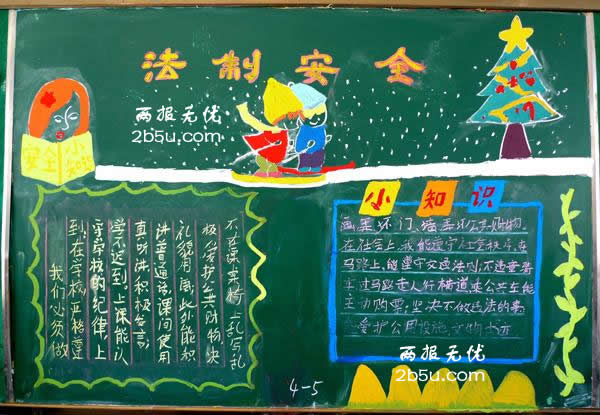 法制安全
两报无忧
2b5u.com
安全小
我们必须做
到,在学校,严格遵
守学校的纪律,上
学不迟到,上课能认
真听讲,积极发言,
讲普通话,课间使用
礼貌用语,此外能积
极爱护公共财物,决
不在课桌椅上乱写乱
小知识
画弄坏门、墙弄坏公共财物。
在社会上,我能遵守社会秩序,在
马路上,能遵守交通法则,不违章
穿过马路走人行横道,乘公共车能
主动购票,坚决不做违法的事
爱护公用设施,文物
两报无忧
2b5u.com
4-5